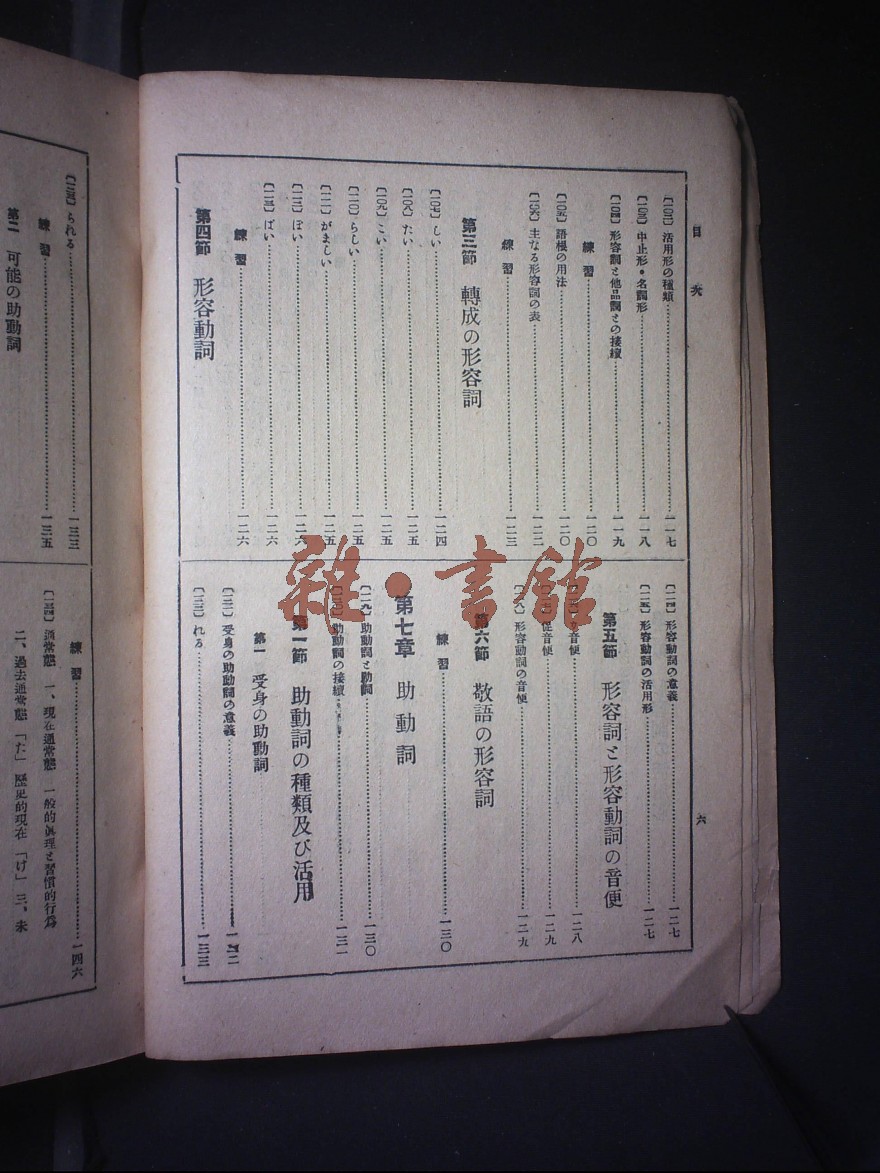 目次
〔一〇二〕活用形の種類……一一七
〔一〇三〕中止形・名詞形……一一八
〔一〇四〕形容詞と他品詞との接續……一一九
練習……一二〇
〔一〇五〕語根の用法……一二〇
〔一〇六〕主なる形容詞の表……一二二
練習……一二三
第三節 轉成の形容詞
〔一〇七〕しい……一二四
〔一〇八〕たい……一二五
〔一〇九〕こい……一二五
〔一一〇〕らしい……一二五
〔一一一〕がましい……一二五
〔一一二〕ぽい……一二六
〔一一三〕ばい……一二六
練習……一二六
第四節 形容動詞
〔一一四〕形容動詞の意義……一二七
〔一一五〕形容動詞の活用形……一二七
第五節 形容詞と形容動詞の音便
音便……一二八
促音便……一二九
〔一一八〕形容動詞の音便……一二九
第六節 敬語の形容詞
練習……一三〇
第七章 助動詞
〔一一九〕助動詞と助詞……一三〇
〔一二〇〕助動詞の接續……一三一
第一節 助動詞の種類及び活用
第一 受身の助動詞
受身の助動詞の意義
れる……一三三
六
られる……一三三
練習……一三五
第二 可能の助動詞
練習……一四六
通常態 一、現在通常態 一般的眞理と習慣的行爲
二、過去通常態「た」歴史的現在「け」三、未
雜・書館